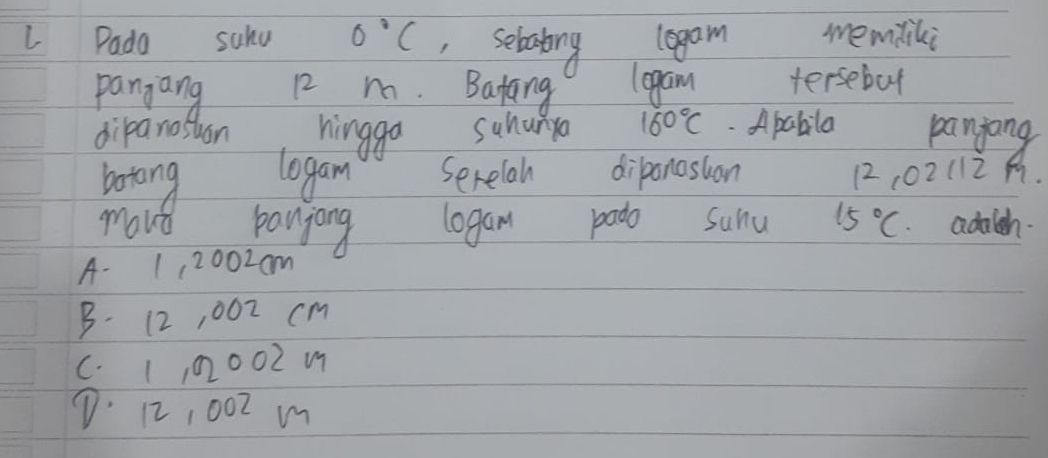 1. Pada suhu 0°C, sebatang logam memiliki
panjang 12 m. Batang logam tersebut
dipanaskan hingga suhunya 160°C. Apabila panjang
batang logam setelah dipanaskan 12,02112 m.
maka panjang logam pada suhu 15°C. adalah.
A. 1,2002 cm
B. 12,002 cm
C. 1,2002 m
D. 12,002 m